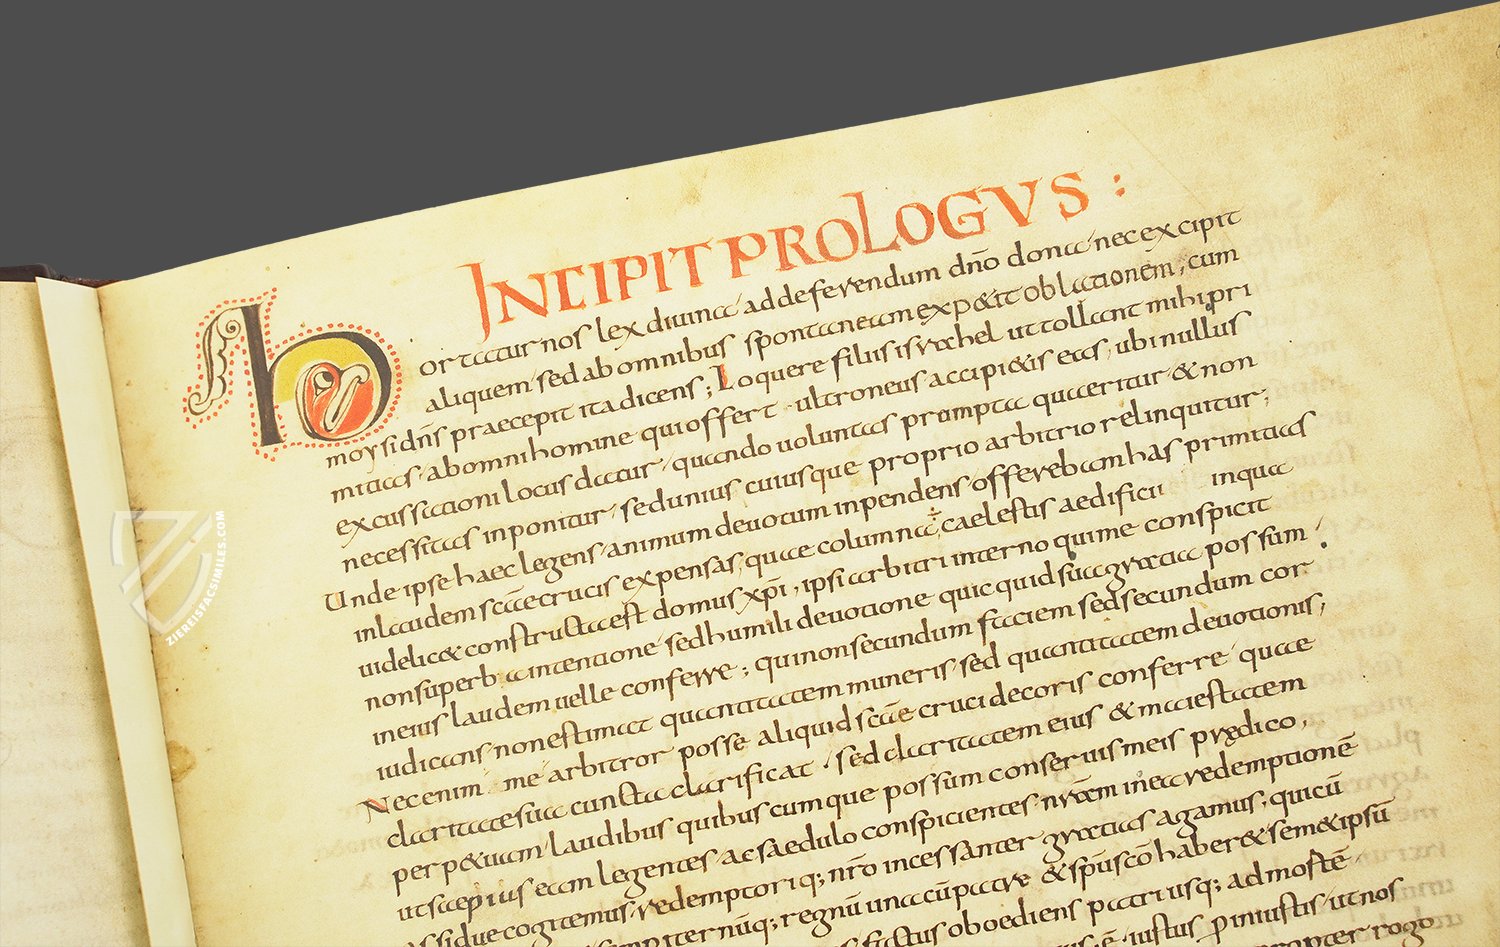 INCIPIT PROLOGVS :
hortatur nos lex diuina ad deferendum dño dona nec excipit
aliquem sed ab omnibus spontaneam exp&it oblationem, cum
moysi dñs praecepit ita dicens; Loquere filiis israhel ut tollant mihi pri
mitias ab omni homine qui offert ultroneus accipi&is eas, ubi nullus
excussationi locus datur quando uoluntas prumpta quaeritur & non
necessitas inponitur sed unius cuiusque proprio arbitrio relinquitur;
Unde ipse haec legens animum deuotum inpendens offerebam has primitias
in laudem scãe crucis expensas, quae columna caelestis aedificii in qua
uidelic& constructa est domus xp̄i, ipsi arbitri interno qui me conspicit
non superba intentione sed humili deuotione quicquid sua gratia possum
in eius laudem uelle conferre; qui non secundum faciem sed secundum cor
iudicans non estimat quantitatem muneris sed quantitatem deuotionis,
Nec enim me arbitror posse aliquid scãe cruci decoris conferre quae
claritate sua cuncta clarificat sed claritatem eius & maiestatem
perp&uam laudibus quibuscumque possum conseruis meis prędico,
ut saepius eam legentes ac saedulo conspicientes nr̄am in ea redemptionē
assidue cogitemus redemptoriq; nr̄o incessanter gratias agamus, qui cū
nūq; regnū una cū patre & spū sco haber& sem&ipsū
factus oboediens patri usq; ad mortē
iustus p iniustis ut nos
propter rogo